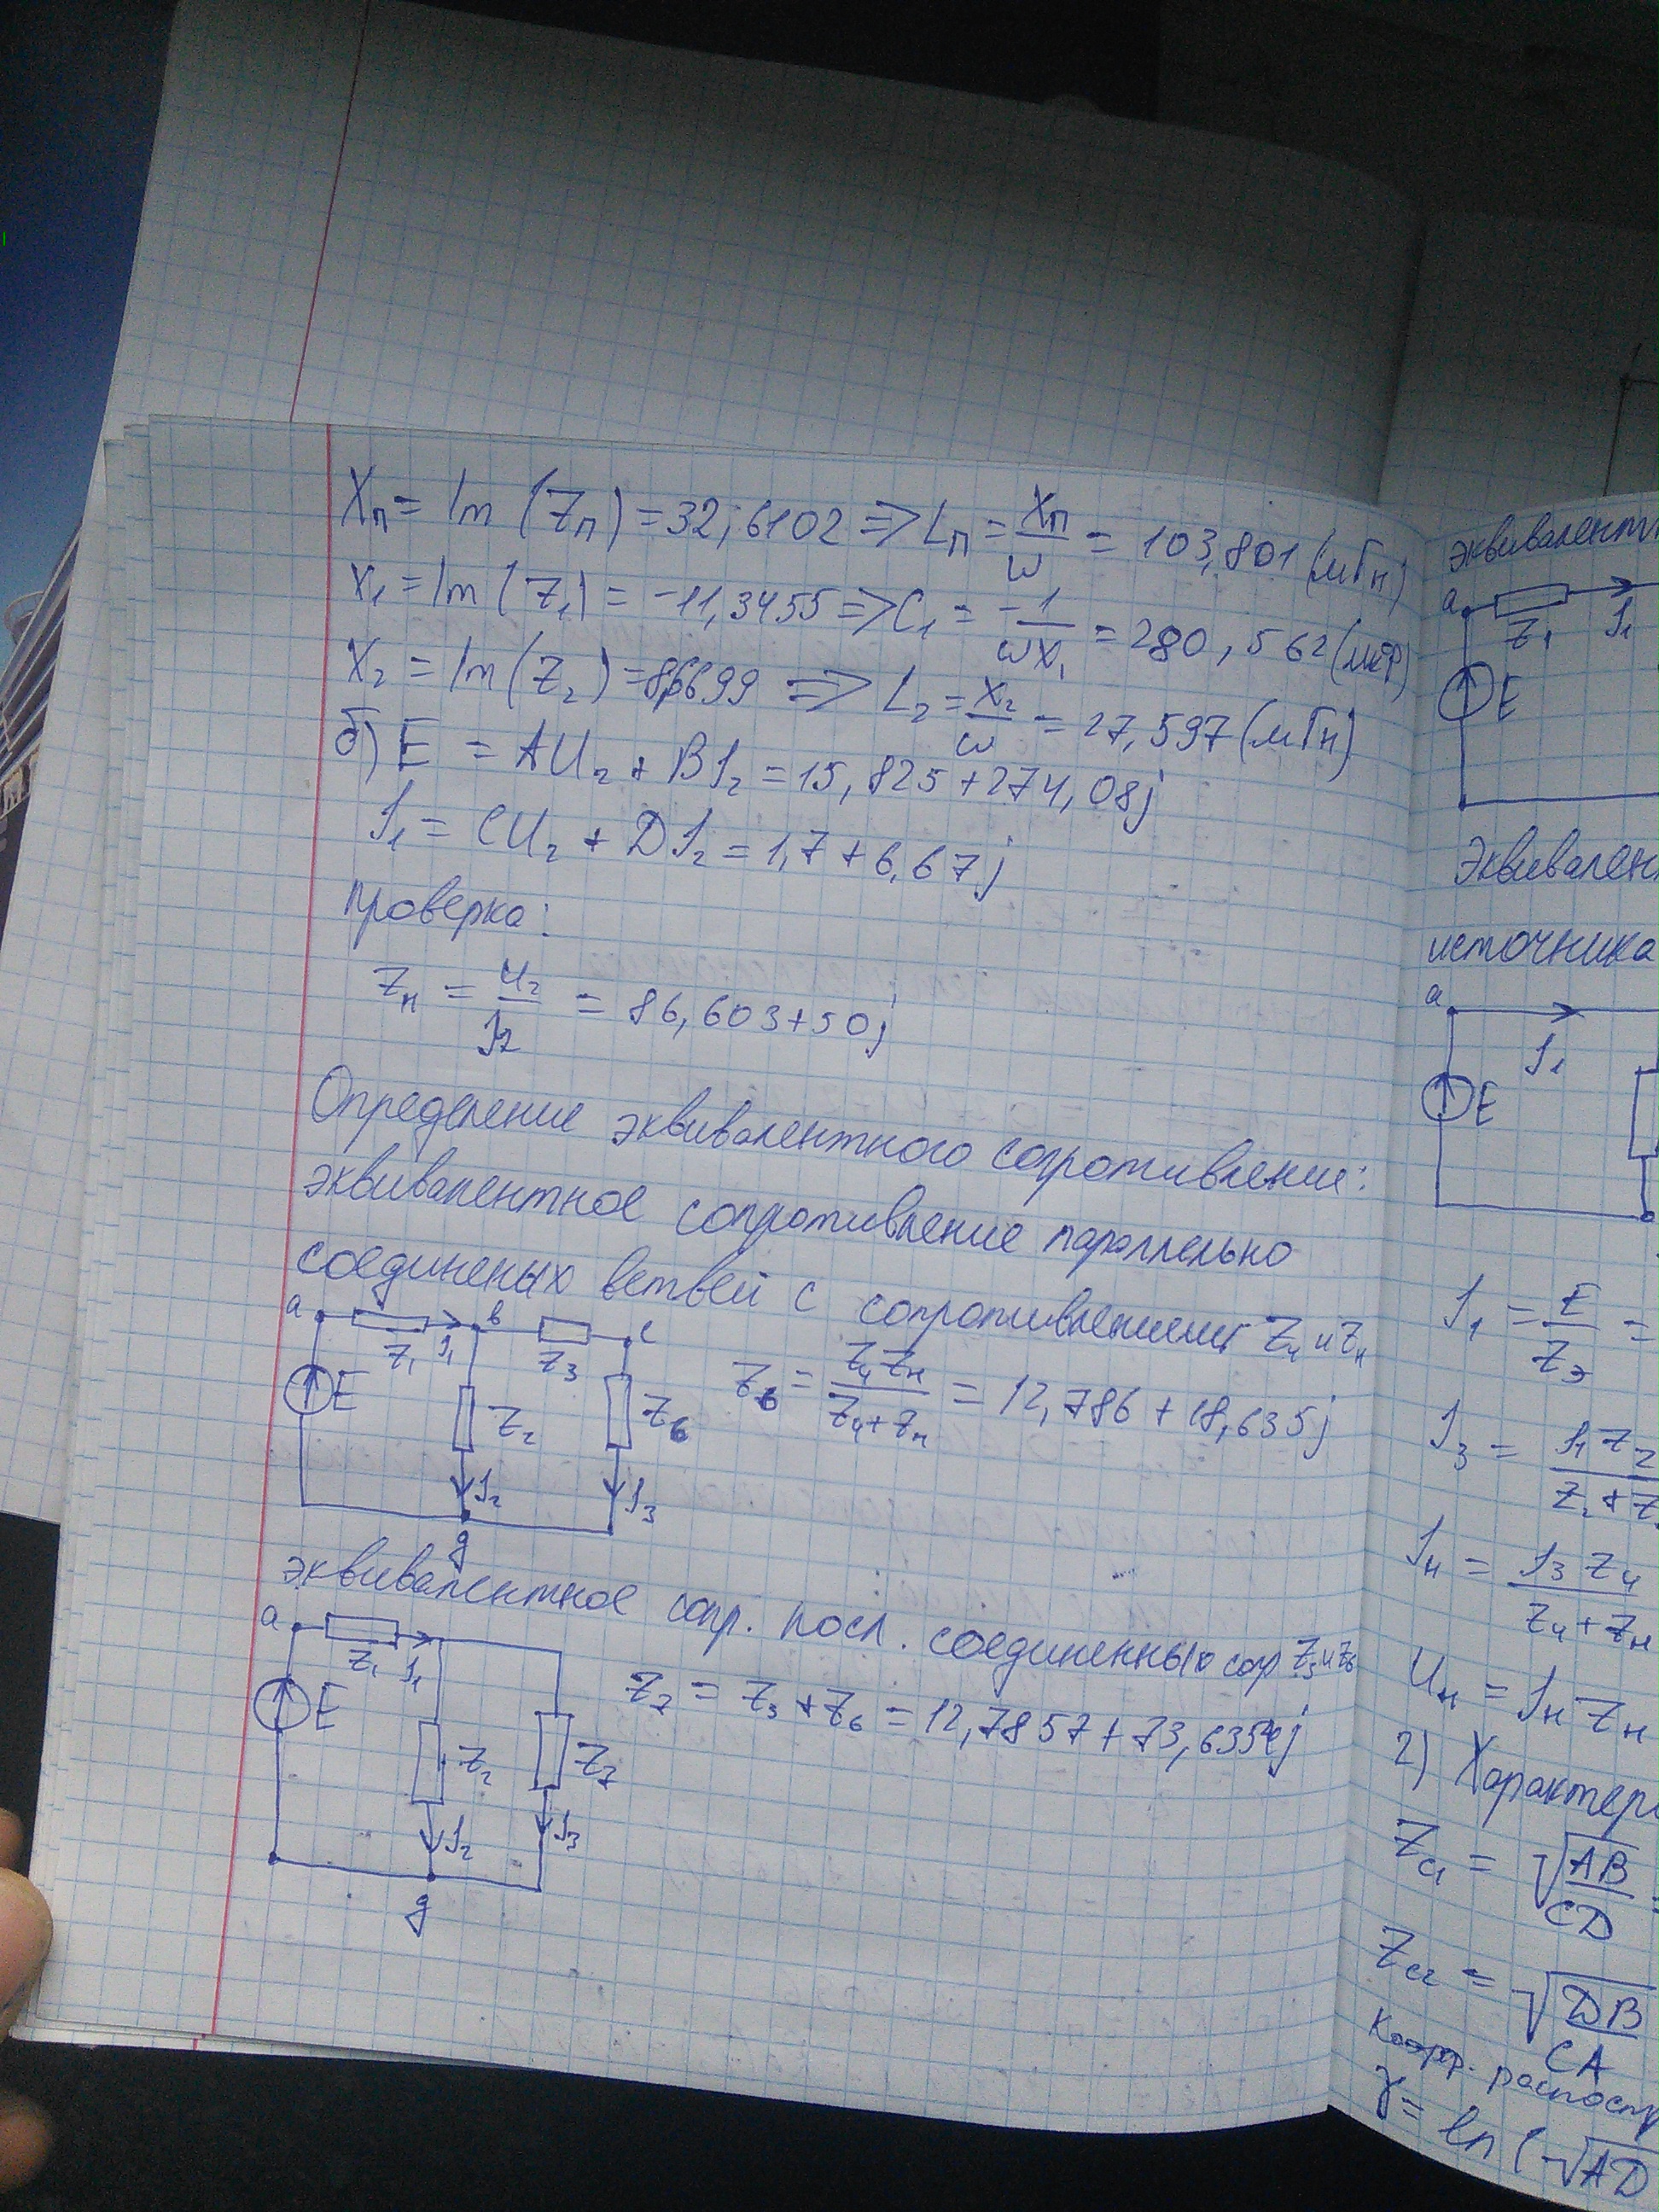 Xп = Im (Zп) = 32,6102 => Lп = Xп/ω = 103,801 (мГн)
X₁ = Im (Z₁) = -11,3455 => C₁ = -1/ωX₁ = 280,562 (мкФ)
X₂ = Im (Z₂) = 8,6699 => L₂ = X₂/ω = 27,597 (мГн)
б) E = AU₂ + BI₂ = 15,825 + 274,08j
I₁ = CU₂ + DI₂ = 1,7 + 6,67j
Проверка:
Zн = U₂/I₂ = 86,603 + 50j
Определение эквивалентного сопротивление:
эквивалентное сопротивление параллельно
соединеных ветвей с сопротивлениями Z₄ и Zн
a Z₁ I₁ b Z₃ c
E Z₂ Z₆ I₂ I₃ g
Z₆ = Z₄Zн/Z₄+Zн = 12,786 + 18,635j
эквивалентное сопр. посл. соединенных сопр Z₃ и Z₆
a Z₁ I₁
E Z₂ Z₇ I₂ I₃ g
Z₇ = Z₃ + Z₆ = 12,7857 + 73,6354j
эквивалентн
a Z₁ I₁
E
Эквивален
источника
a I₁
E
I₁ = E/Zэ =
I₃ = I₁Z₂/Z₂+Z
Iн = I₃Z₄/Z₄+Zн
Uн = IнZн
2) Характери
Zc₁ = √AB/CD
Zc₂ = √DB/CA
Коэфф. распостр
γ = ln (√AD